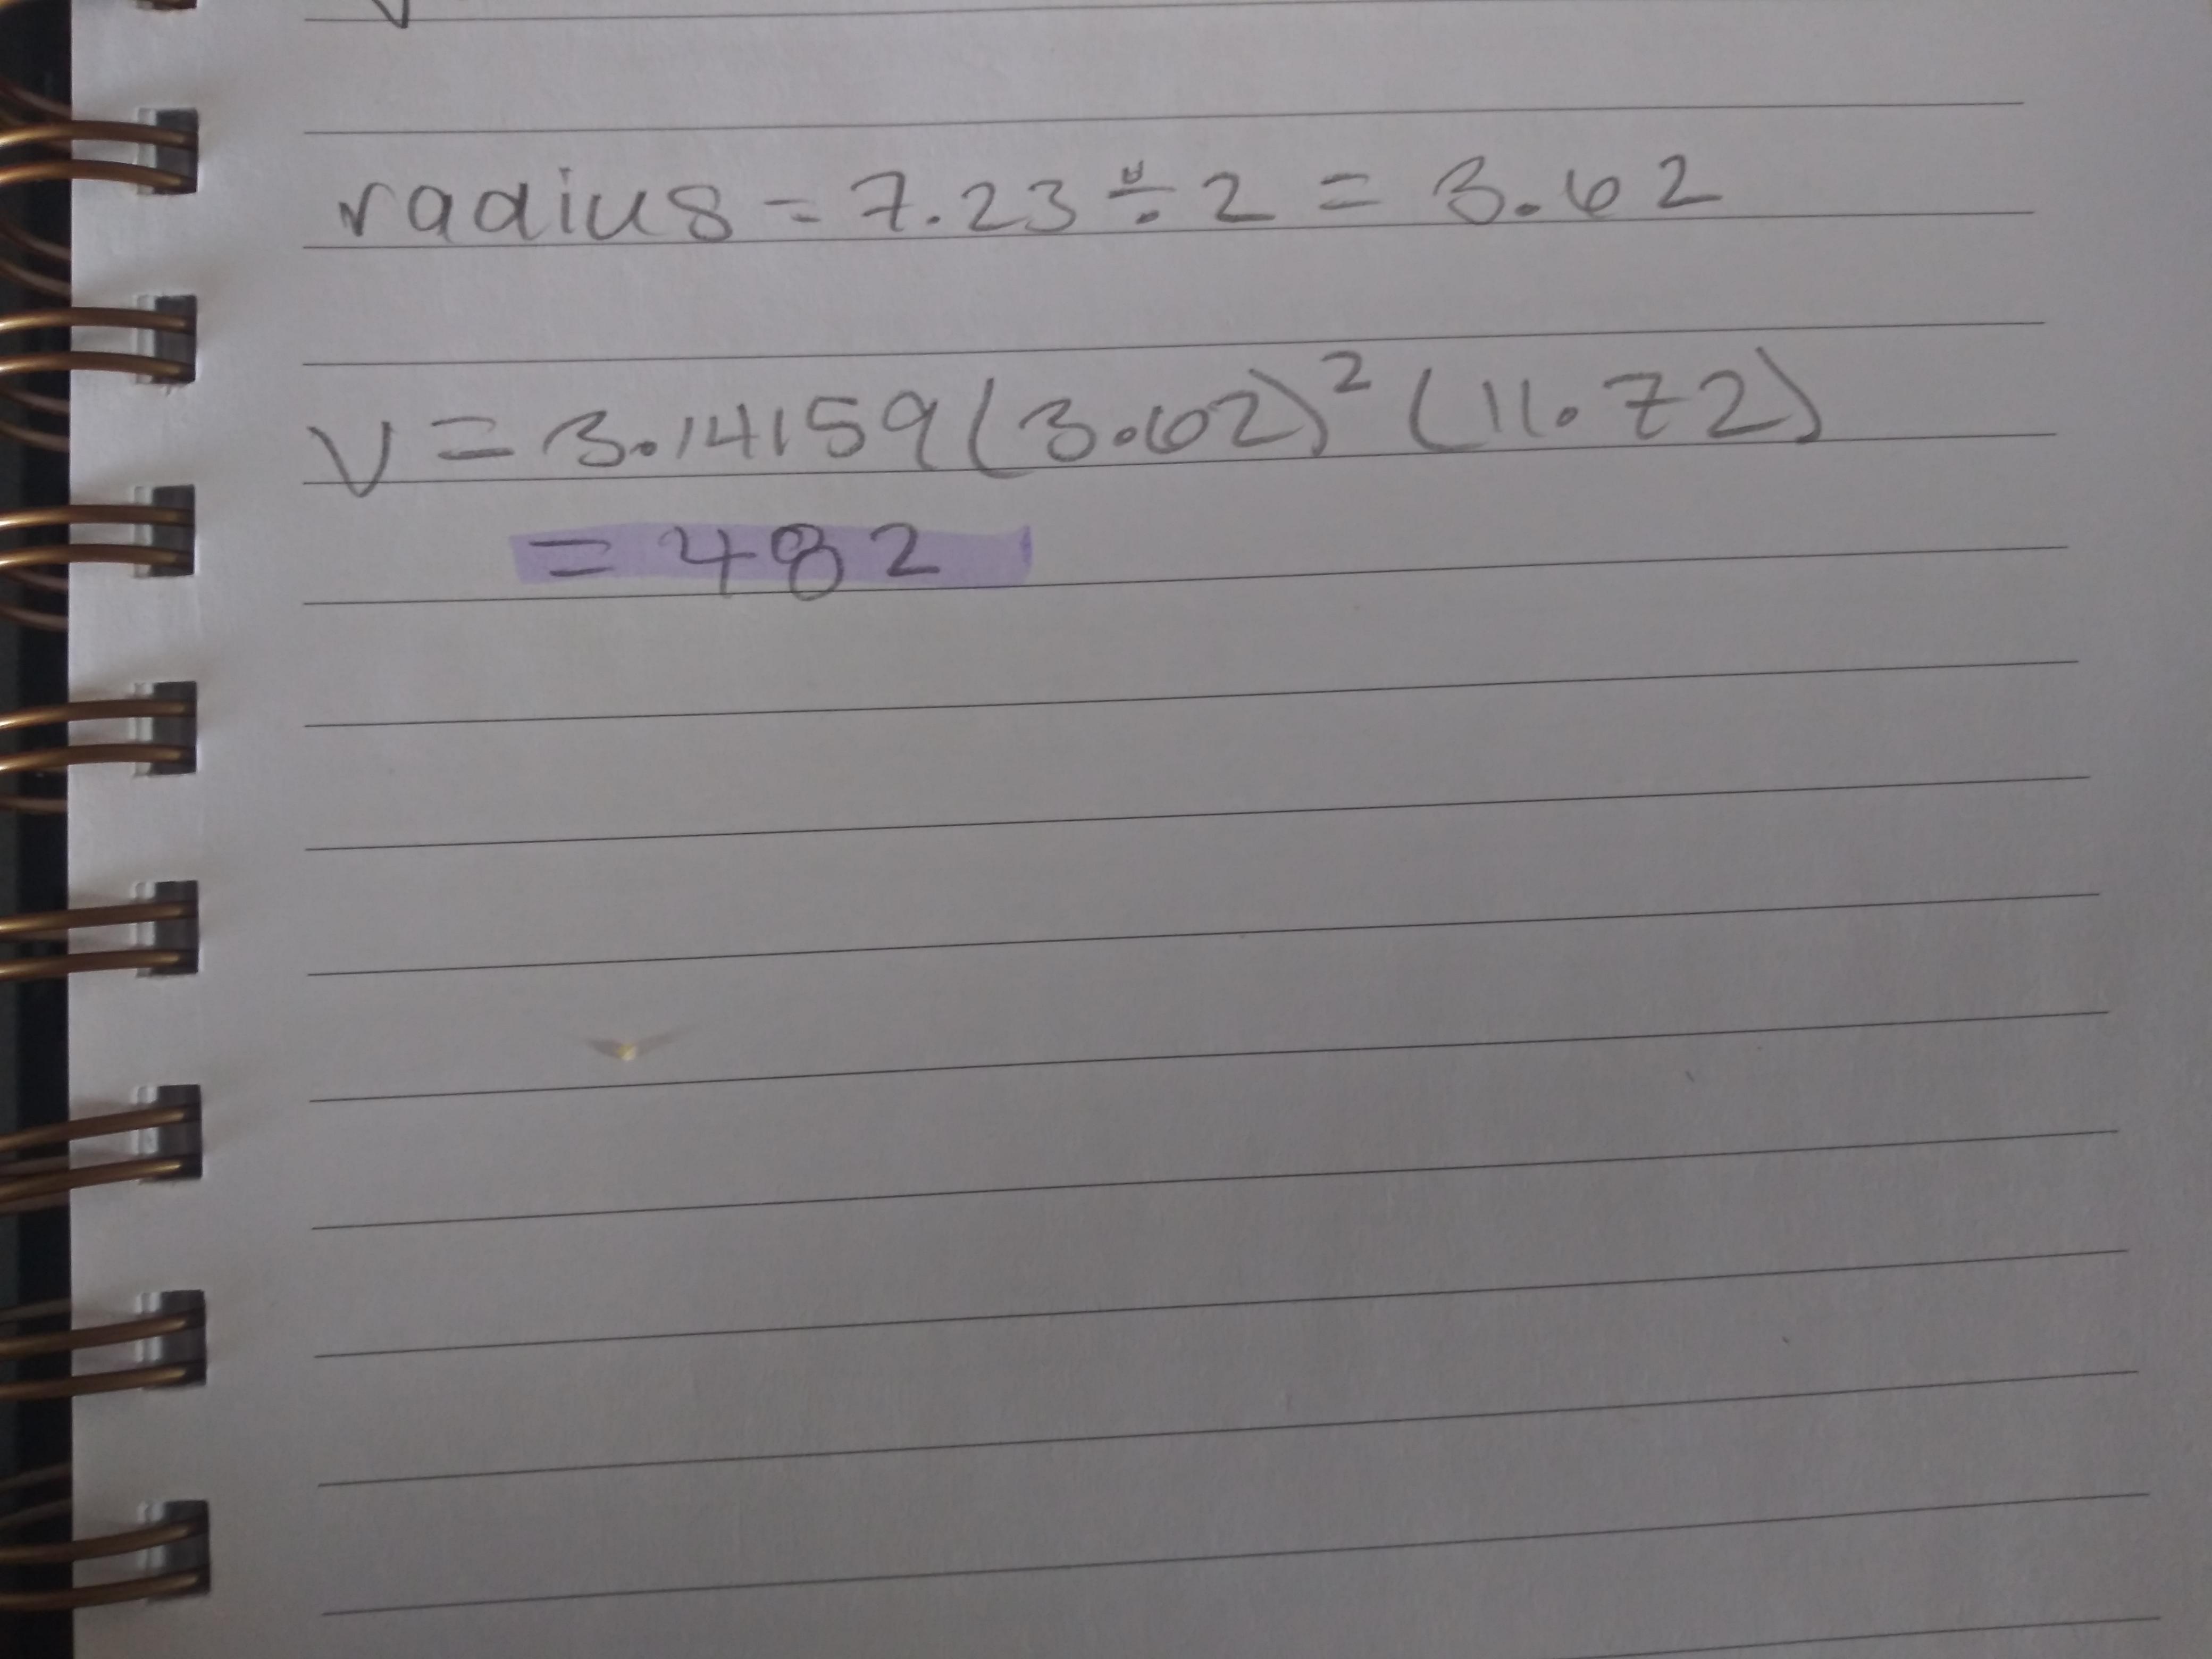 radius = 7.23 ÷ 2 = 3.62
V = 3.14159 (3.62)² (11.72)
= 482